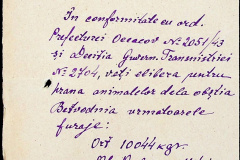 In conformitate cu ord.
Prefecturei Oceacov No. 2051/43
și Deciția Guvern. Transnistriei
No. 2704, veți elibera pentru
hrana animalelor dela obștia
urmatoarele
furaje:
Orz 10044 kgr.